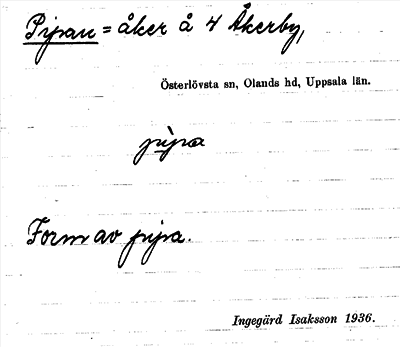 Pipan = åker å 4 Åkerby,
Österlövsta sn, Olands hd, Uppsala län.
pìpa
Form av pipa.
Ingegärd Isaksson 1936.